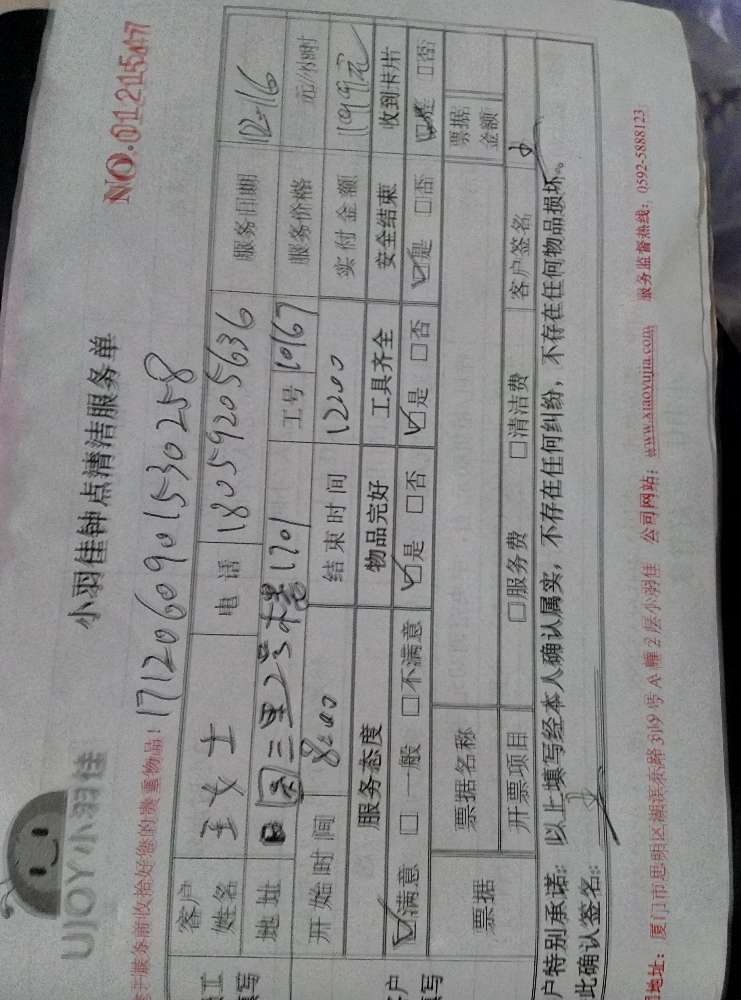 UJOY小羽佳
小羽佳钟点清洁服务单
NO.0121547
服务前收拾好您的贵重物品!
1712060901530258
客户姓名 王女士 电话 18059205636 服务日期 12.16
地址 园三里2号楼1701 工号 10167 服务价格 元/小时
开始时间 8:00 结束时间 12:00 实付金额 199元
服务态度 物品完好 工具齐全 安全结束 收到卡片
☑满意 □一般 □不满意 ☑是 □否 ☑是 □否 ☑是 □否 ☑是 □否
票据 票据名称 票据金额
开票项目 □服务费 □清洁费 客户签名
户特别承诺: 以上填写经本人确认属实,不存在任何纠纷,不存在任何物品损坏。
此确认签名:
地址: 厦门市思明区湖滨东路319号A幢2层小羽佳 公司网站: www.xiaoyujia.com 服务监督热线: 0592-5888123